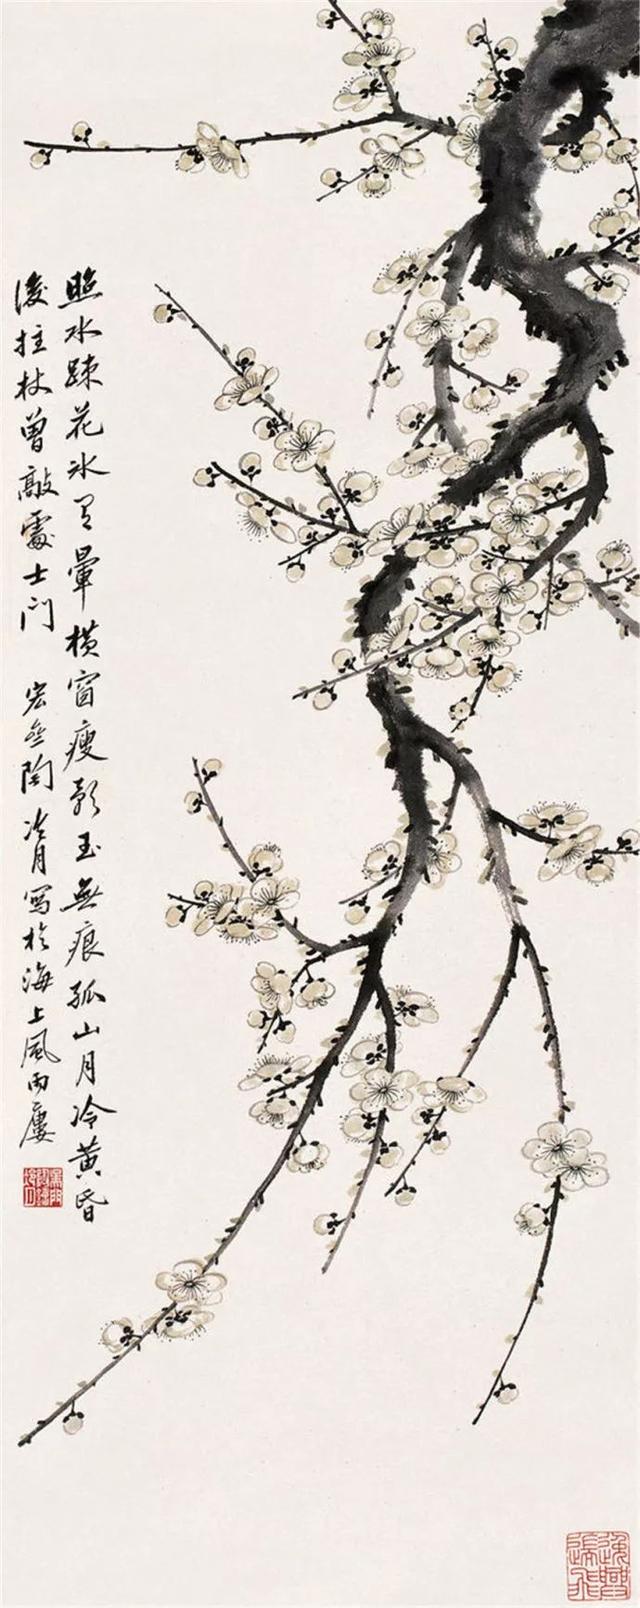 照水疎花冰有暈橫窗瘦影玉無痕孤山月冷黃昏
後拄杖曾敲處士門 宏無陶冷月寫於海上風雨廔